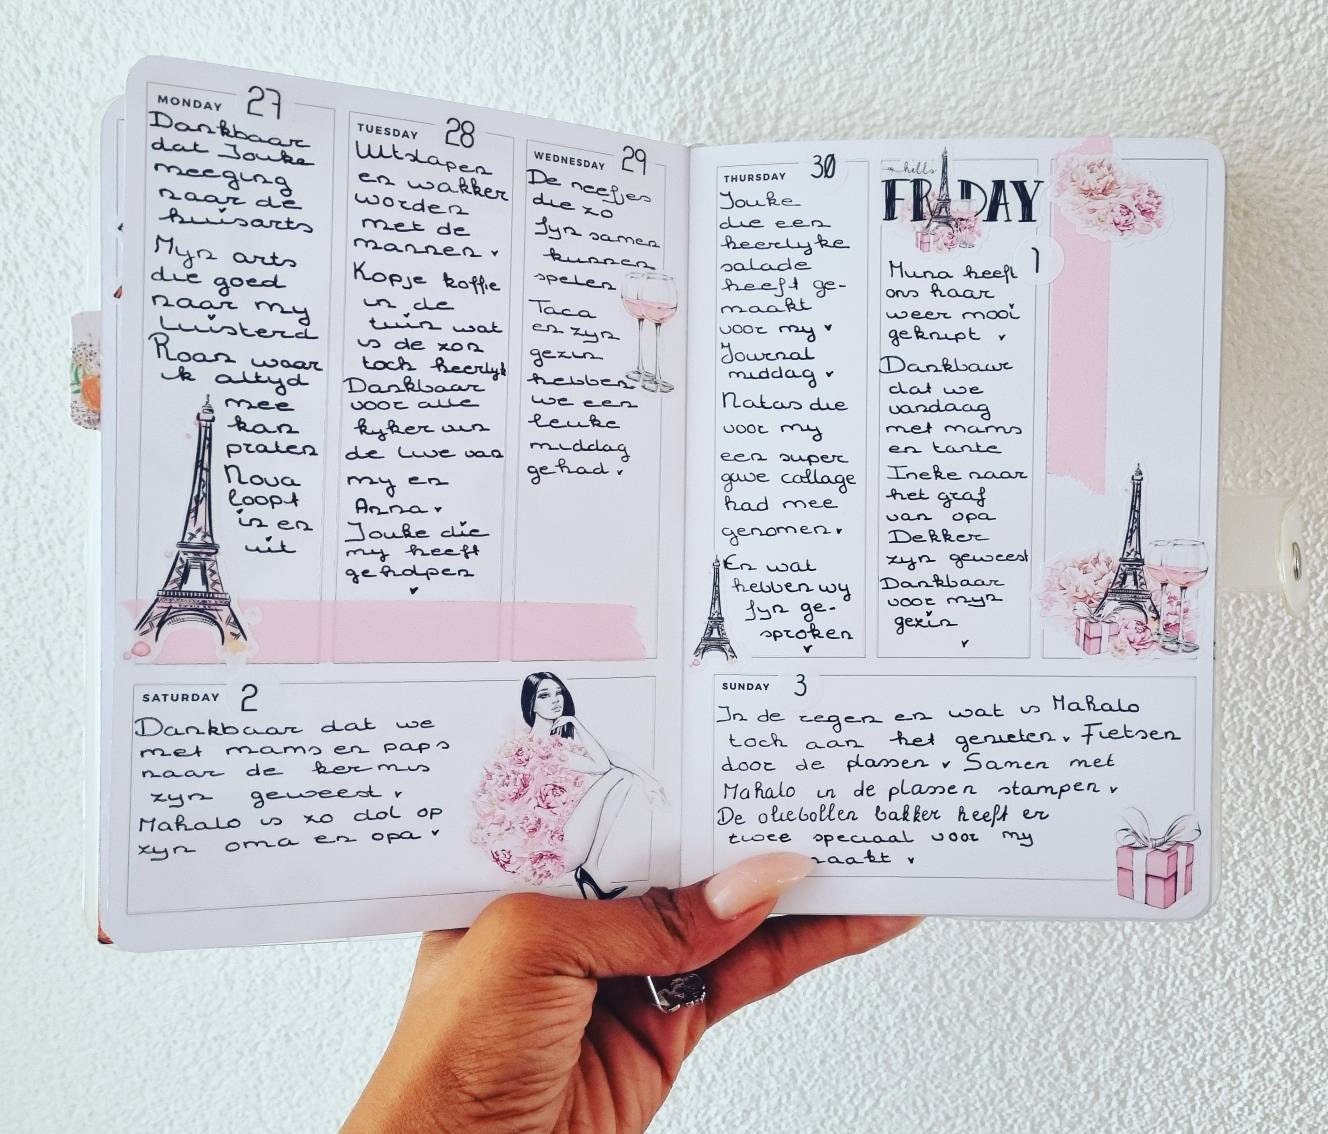 MONDAY 27
Dankbaar
dat Jouke
meeging
naar de
huisarts
Myn arts
die goed
naar my
luisterd
Roan waar
ik altyd
mee
kan
praten
Nova
loopt
in en
uit
TUESDAY 28
Uitslapen
en wakker
worden
met de
mannen
Kopje koffie
in de
tuin wat
is de zon
toch heerlyk
Dankbaar
voor alle
kyker van
de live van
my en
Anna
Jouke die
my heeft
geholpen
WEDNESDAY 29
De neefjes
die zo
fyn samen
kunnen
spelen
Taca
en zyn
gezin
hebben
we een
leuke
middag
gehad
THURSDAY 30
Jouke
die een
heerlyke
salade
heeft ge-
maakt
voor my
Journal
middag
Natas die
voor my
een super
gave collage
had mee
genomen
En wat
hebben wy
fyn ge-
sproken
hello
FRIDAY
1
Muna heeft
ons haar
weer mooi
geknipt
Dankbaar
dat we
vandaag
met mams
en tante
Ineke naar
het graf
van opa
Dekker
zyn geweest
Dankbaar
voor myn
gezin
SATURDAY 2
Dankbaar dat we
met mams en paps
naar de kermis
zyn geweest
Mahalo is zo dol op
zyn oma en opa
SUNDAY 3
In de regen en wat is Mahalo
toch aan het genieten. Fietsen
door de plassen Samen met
Mahalo in de plassen stampen
De oliebollen bakker heeft er
twee speciaal voor my